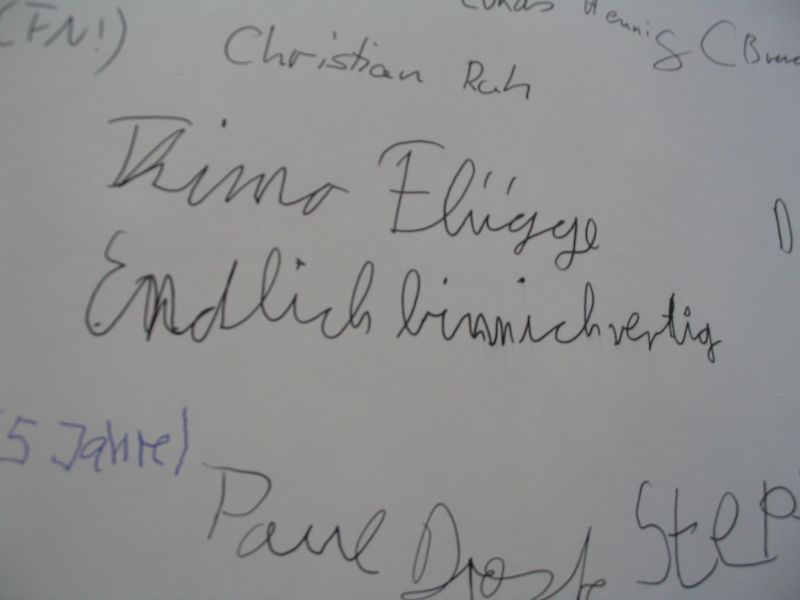 Lukas Hennig (
(FN!)
Christian Rah
Timo Flügge
Endlich binnich vertig
(5 Jahre)
Paul Droste Step